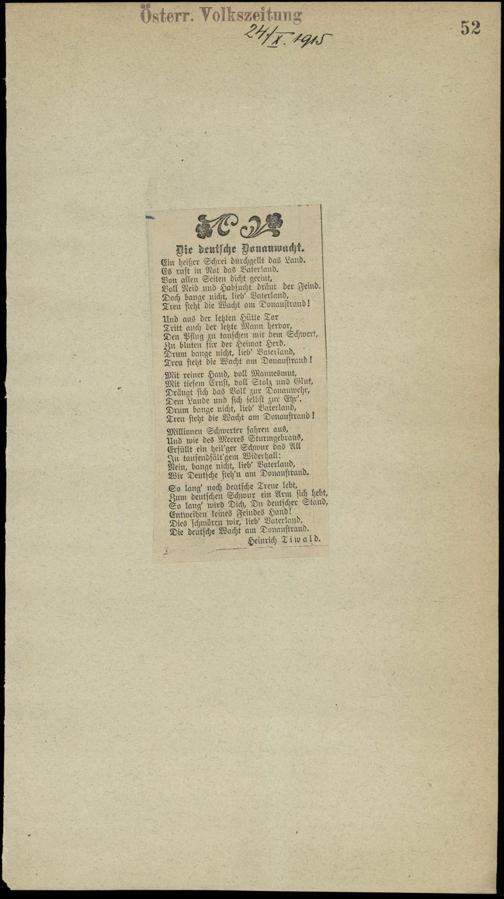 Österr. Volkszeitung
24/X. 1915
52
Die deutsche Donauwacht.
Ein heißer Schrei durchgellt das Land.
Es ruft in Not das Vaterland.
Von allen Seiten dicht geeint,
Voll Neid und Habsucht dräut der Feind.
Doch bange nicht, lieb' Vaterland,
Treu steht die Wacht am Donaustrand!
Und aus der letzten Hütte Tor
Tritt auch der letzte Mann hervor,
Den Pflug zu tauschen mit dem Schwert,
Zu bluten für der Heimat Herd.
Drum bange nicht, lieb' Vaterland,
Treu steht die Wacht am Donaustrand!
Mit reiner Hand, voll Mannesmut,
Mit tiefem Ernst, voll Stolz und Glut,
Drängt sich das Volk zur Donauwehr,
Dem Lande und sich selbst zur Ehr'.
Drum bange nicht, lieb' Vaterland,
Treu steht die Wacht am Donaustrand!
Millionen Schwerter fahren aus,
Und wie des Meeres Sturmgebraus,
Erfüllt ein heil'ger Schwur das All
In tausendfält'gem Widerhall:
Nein, bange nicht, lieb' Vaterland,
Wir Deutsche steh'n am Donaustrand.
So lang' noch deutsche Treue lebt,
Zum deutschen Schwur ein Arm sich hebt,
So lang' wird Dich, Du deutscher Stand,
Entweihen keines Feindes Hand!
Dies schwören wir, lieb' Vaterland,
Die deutsche Wacht am Donaustrand.
Heinrich Tiwald.